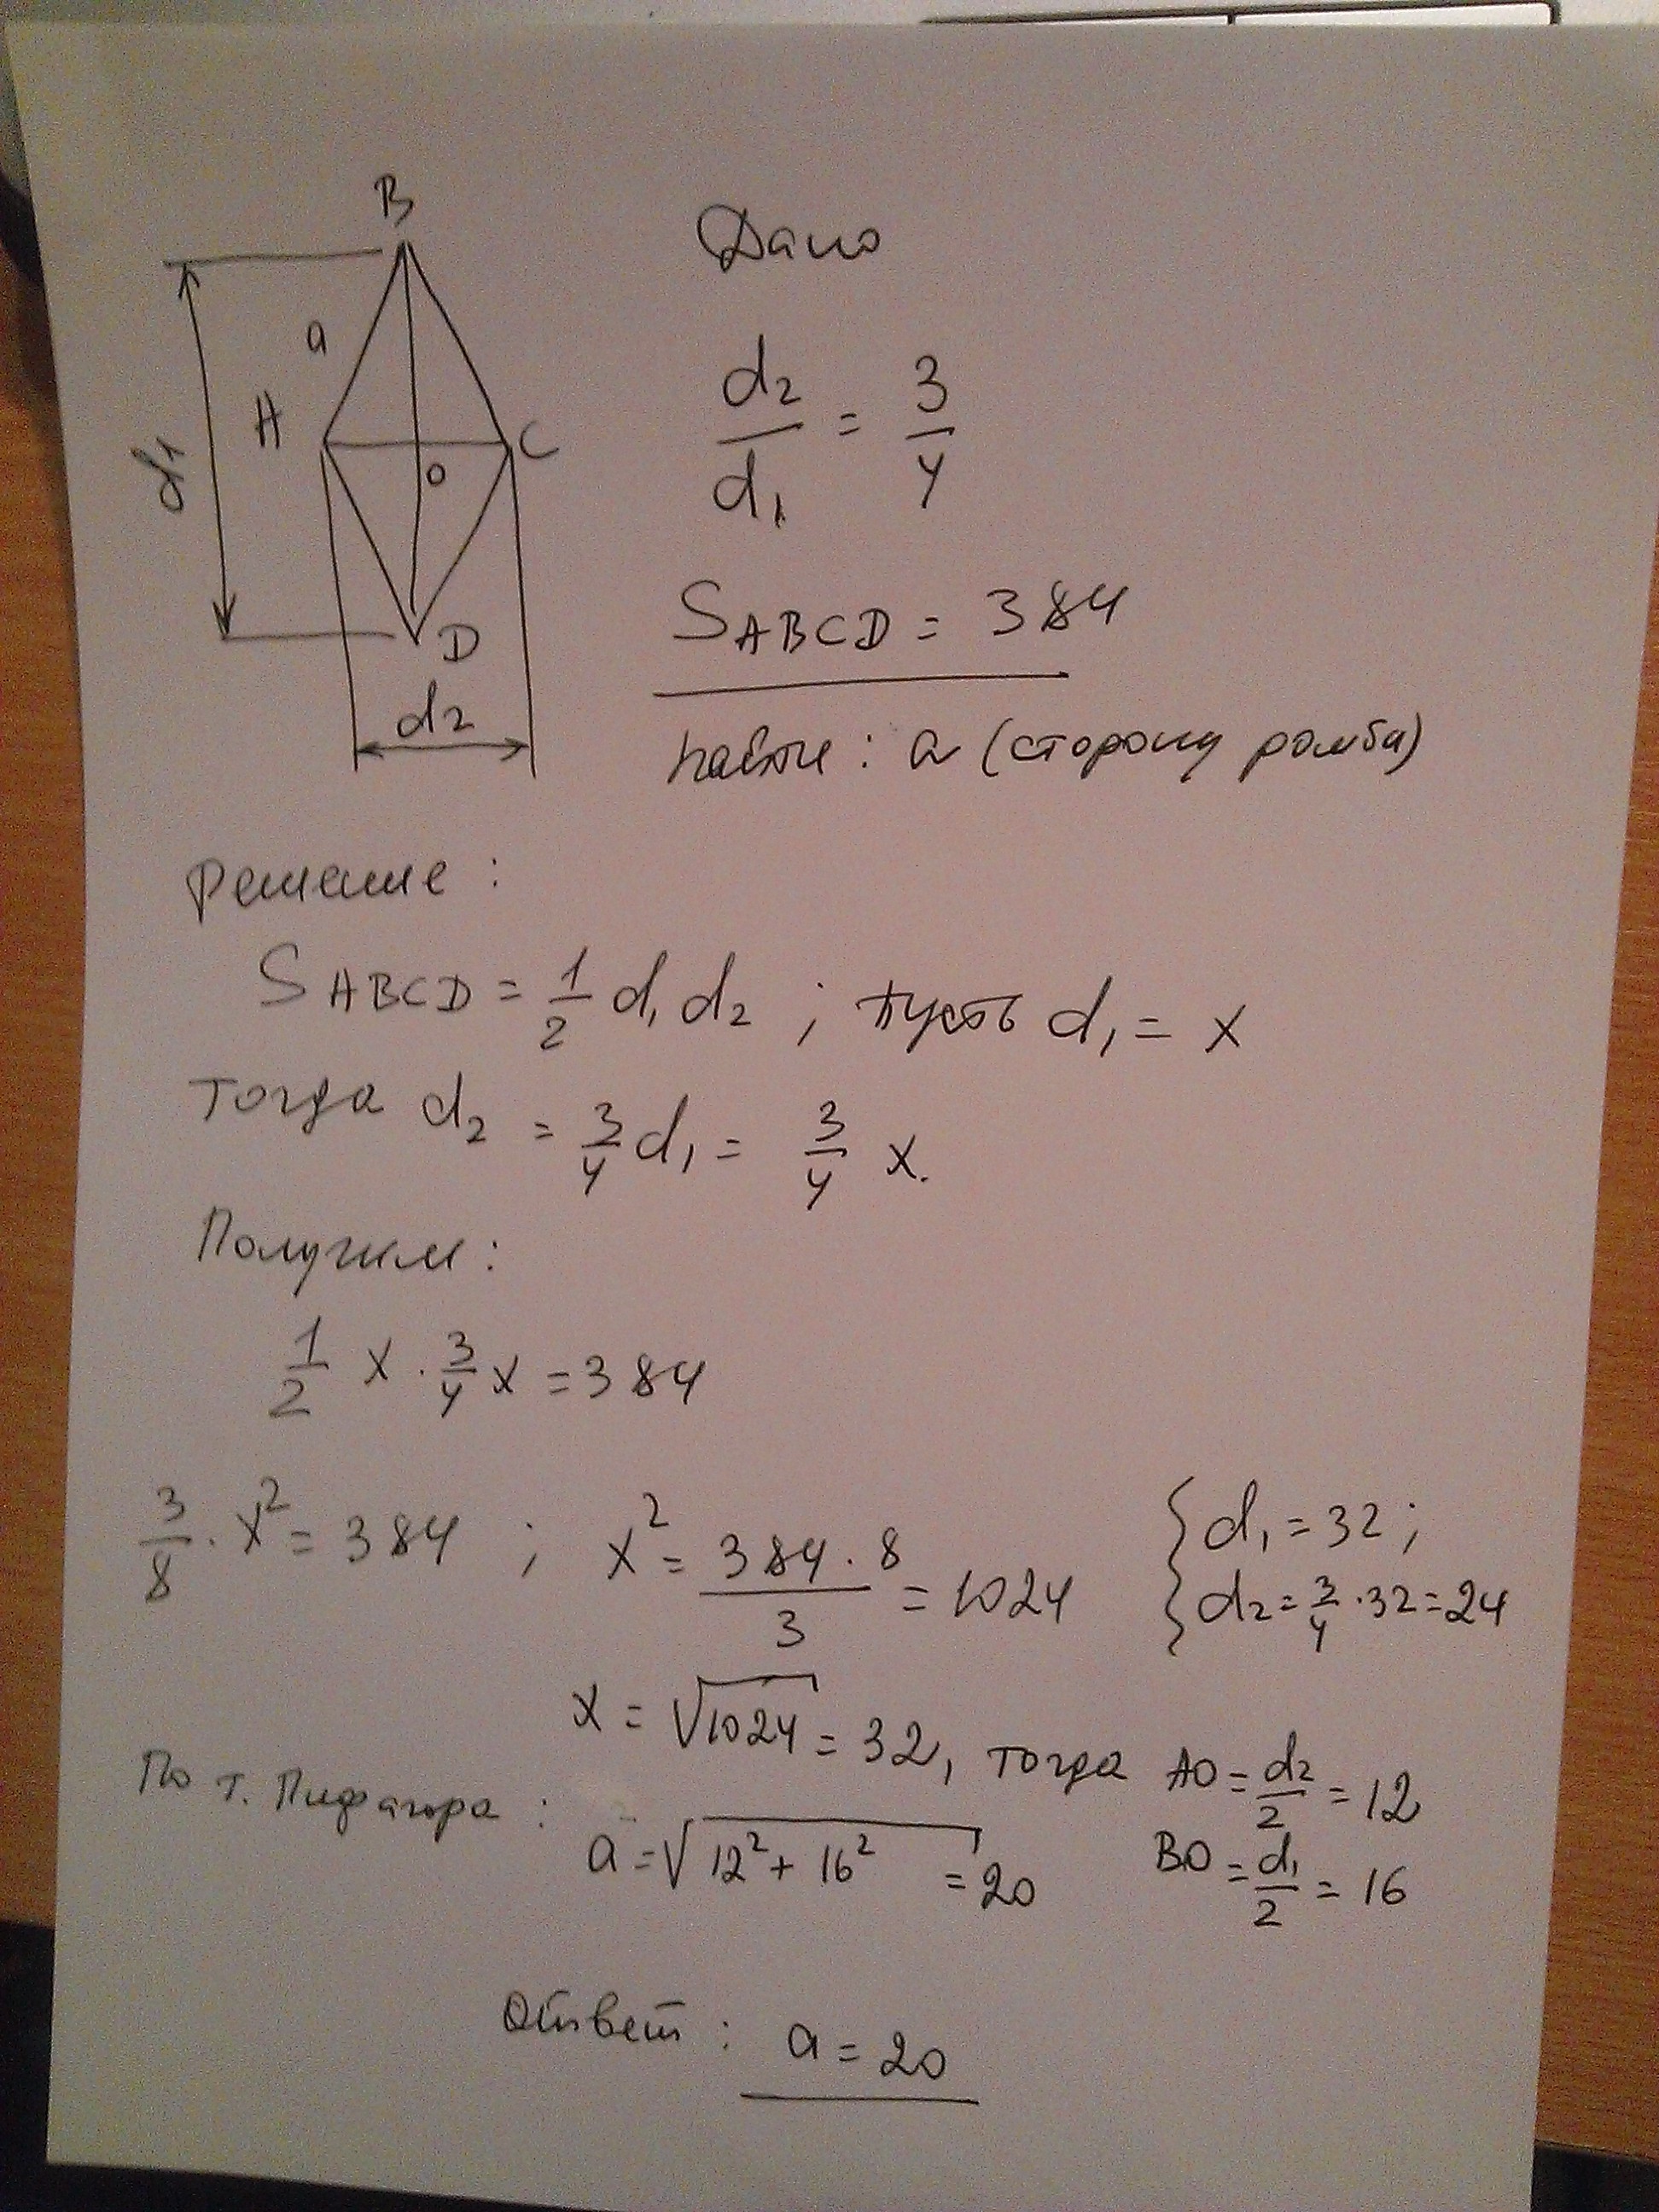 B
Дано
a
d₂/d₁ = 3/4
A
C
d₁
O
S ABCD = 384
D
d₂
Найти: a (сторону ромба)
Решение:
S ABCD = 1/2 d₁ d₂ ; пусть d₁ = x
Тогда d₂ = 3/4 d₁ = 3/4 x.
Получим:
1/2 x · 3/4 x = 384
3/8 · x² = 384 ; x² = 384 · 8 / 3 = 1024
{ d₁ = 32;
{ d₂ = 3/4 · 32 = 24
x = √1024 = 32, тогда AO = d₂/2 = 12
По т. Пифагора: a = √12² + 16² = 20
BO = d₁/2 = 16
Ответ: a = 20